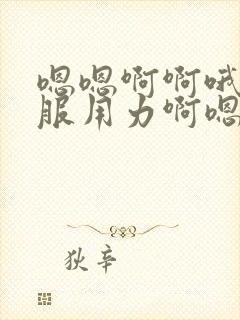 嗯嗯啊啊哦
服用力啊嗯
狄辛